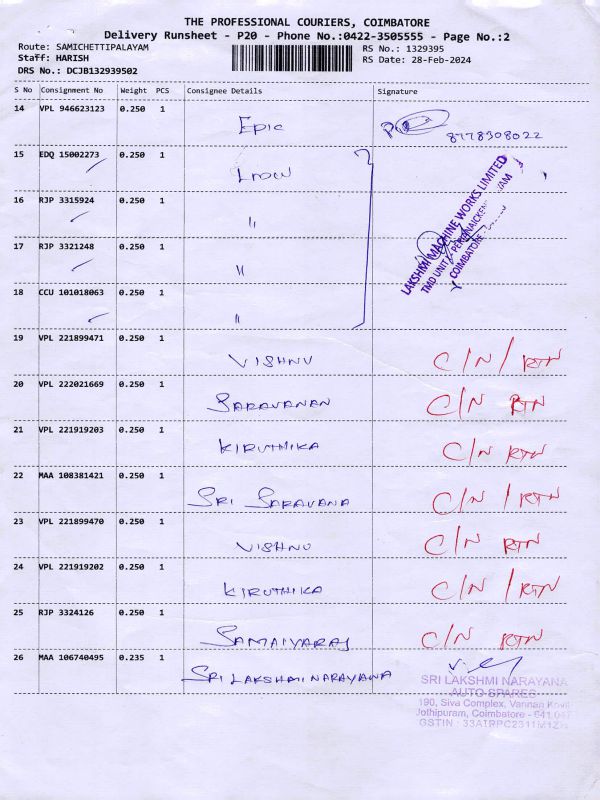 THE PROFESSIONAL COURIERS, COIMBATORE
Delivery Runsheet - P20 - Phone No.:0422-3505555 - Page No.:2
Route: SAMICHETTIPALAYAM RS No.: 1329395
Staff: HARISH RS Date: 28-Feb-2024
DRS No.: DCJB132939502
S No Consignment No Weight PCS Consignee Details Signature
14 VPL 946623123 0.250 1 Epic 8778308022
15 EDQ 15002273 0.250 1
16 RJP 3315924 0.250 1 "
17 RJP 3321248 0.250 1 "
18 CCU 101018063 0.250 1 "
LAKSHMI MACHINE WORKS LIMITED
TMD UNIT
COIMBATORE
19 VPL 221899471 0.250 1 VISHNU C/N / RTN
20 VPL 222021669 0.250 1 SARAVANAN C/N RTN
21 VPL 221919203 0.250 1 KIRUTHIKA C/N RTN
22 MAA 108381421 0.250 1 SRI SARAVANA C/N / RTN
23 VPL 221899470 0.250 1 VISHNU C/N RTN
24 VPL 221919202 0.250 1 KIRUTHIKA C/N / RTN
25 RJP 3324126 0.250 1 SAMAIYARAJ C/N RTN
26 MAA 106740495 0.235 1 SRI LAKSHMI NARAYANA
SRI LAKSHMI NARAYANA
AUTO SPARES
190, Siva Complex, Vannan Kovil
Jothipuram, Coimbatore - 641 047
GSTIN :